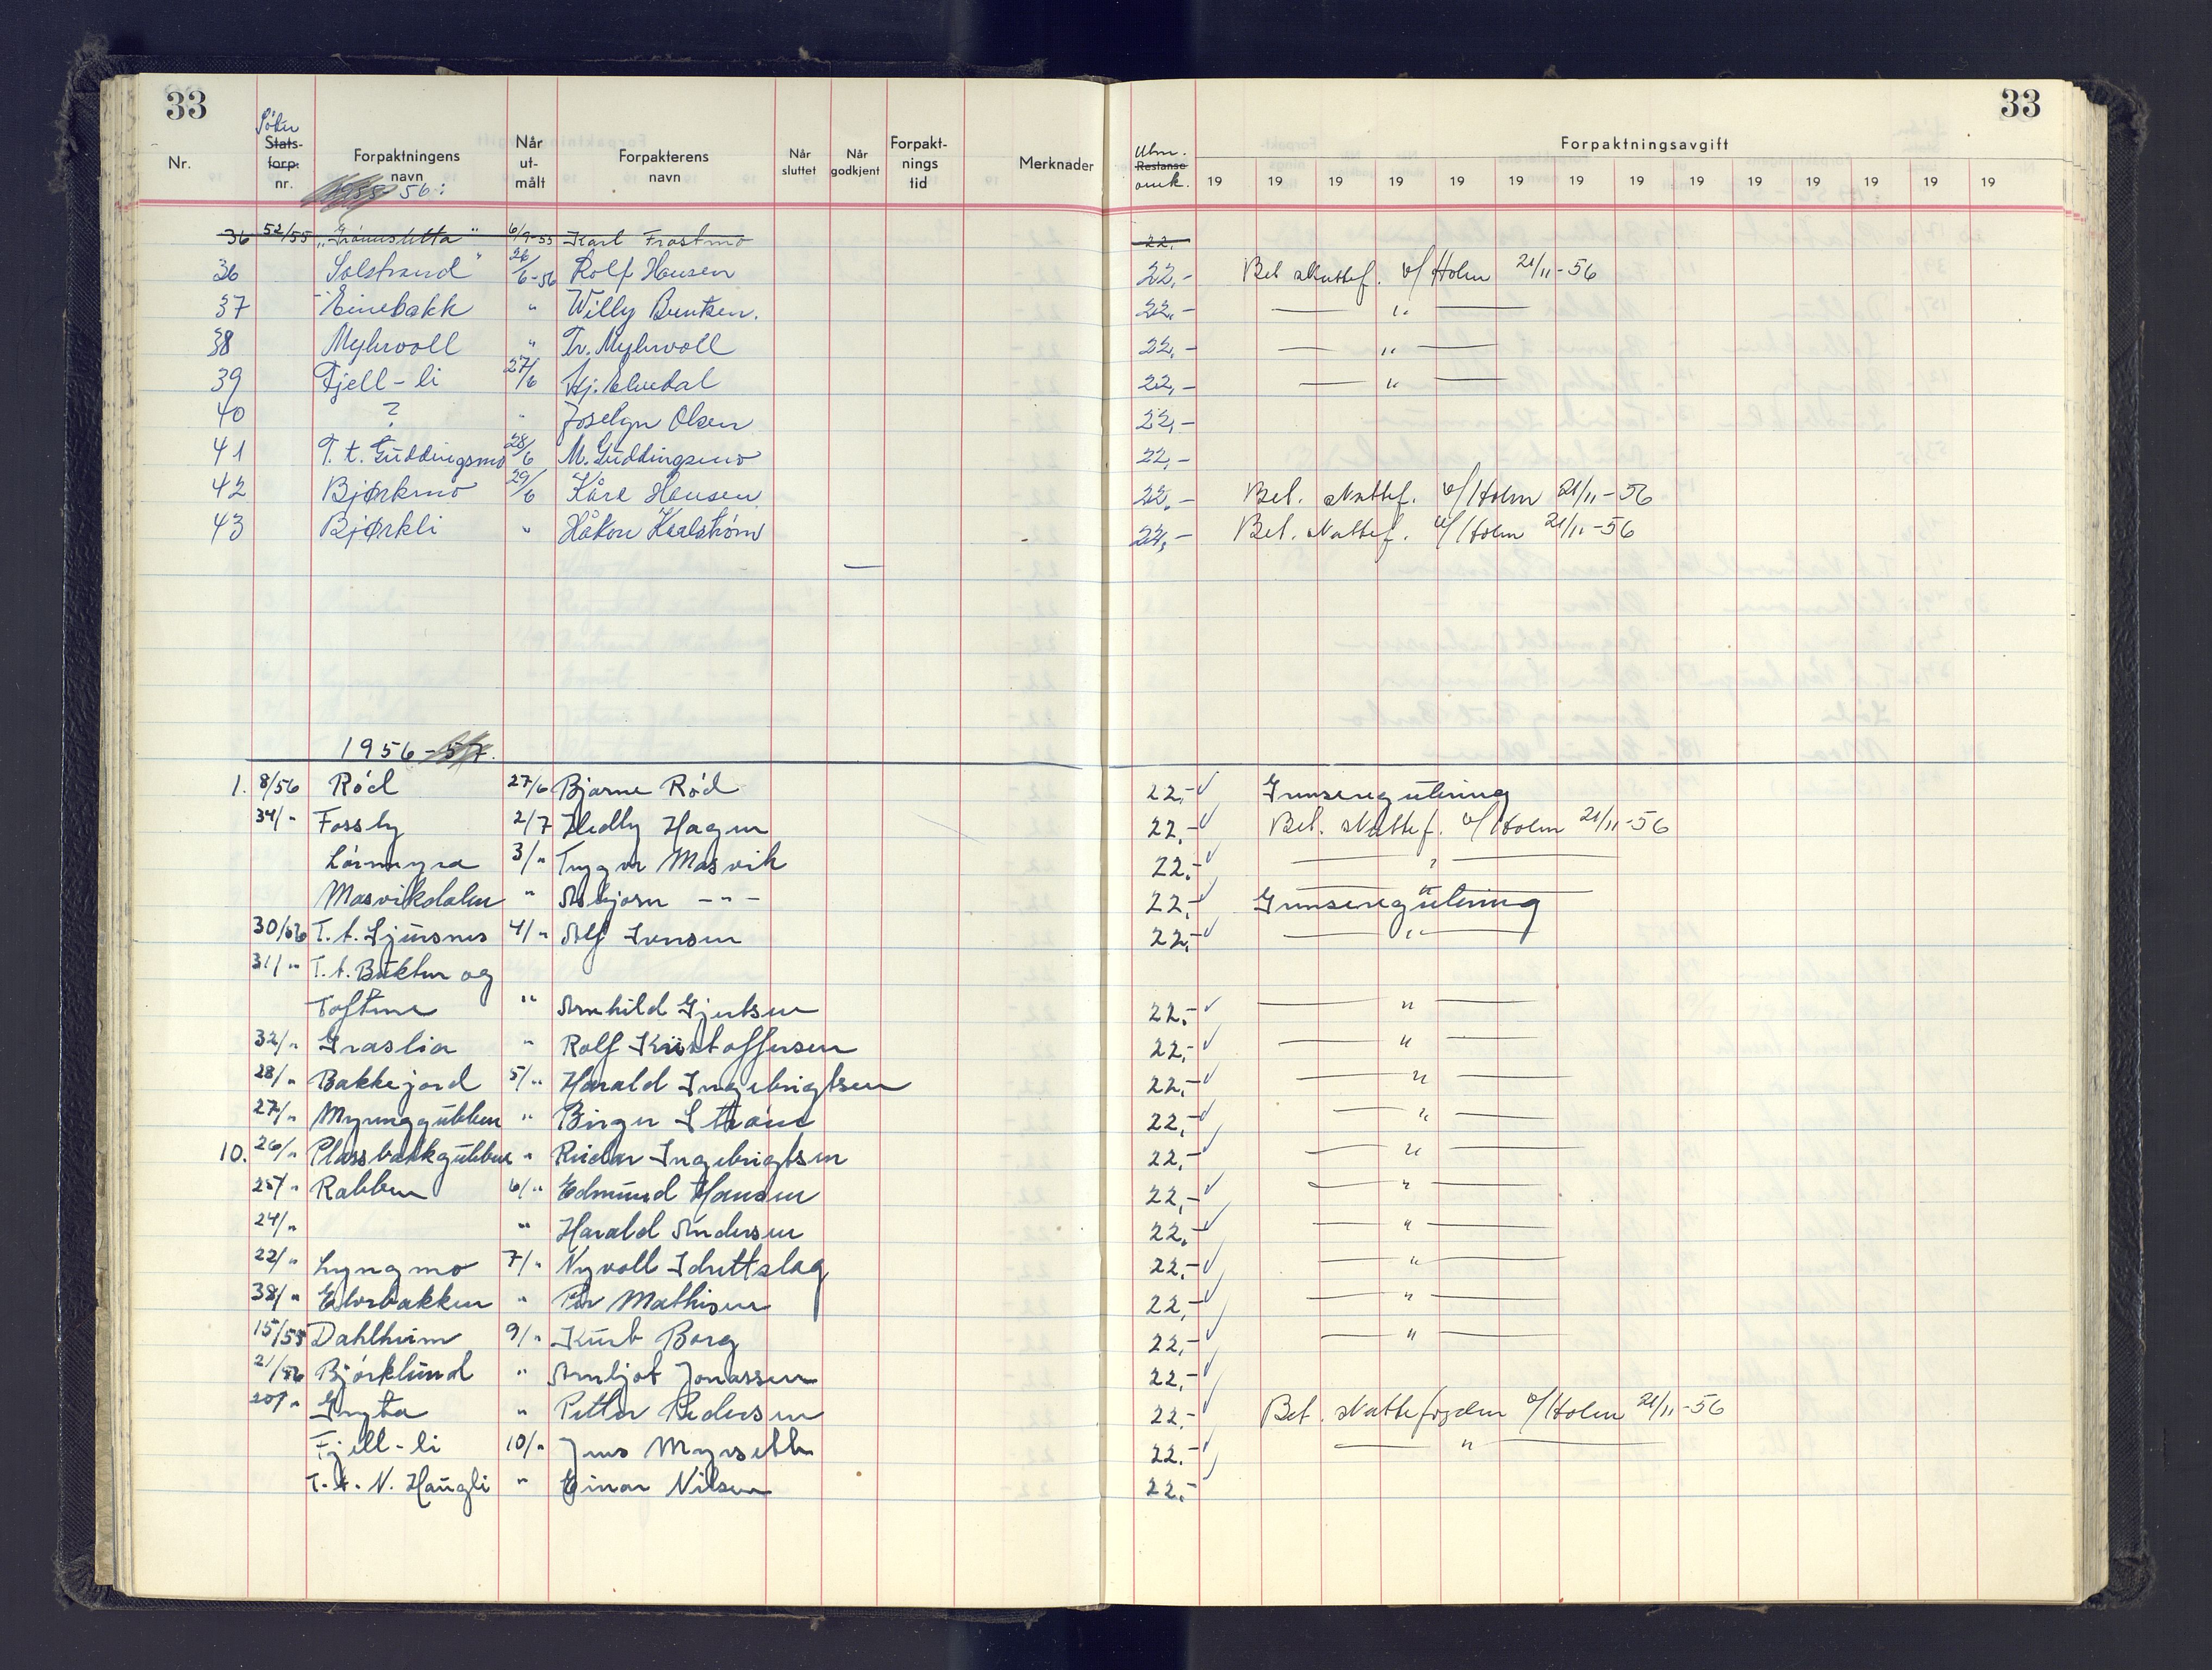 33 33
Søkn
Nr. Stats-forp. nr. Forpaktningens navn Når ut-målt Forpakterens navn Når sluttet Når godkjent Forpakt-nings tid Merknader Restanse omk. Forpaktningsavgift
19 19 19 19 19 19 19 19 19 19 19 19 19 19
56:
36 52/55 6/9-55 Karl Frostmo 22,-
36 Solstrand" 26/6-56 Rolf Hansen 22,- Bet skattef. v/Holm 21/11-56
37 Einebakk " Willy Bentzen. 22,- — " —
38 Myhrvoll " Tr. Myhrvoll 22,- — " —
39 Fjell-li 27/6 Hj. Elvedal 22,- — " —
40 ? " Joselyn Olsen 22,-
41 T.t. Guddingsmo 28/6 M. Guddingsmo 22,-
42 Bjørkmo 29/6 Kåre Hansen 22,- Bet. skattef. v/Holm 21/11-56
43 Bjørkli " Håkon Karlstrøm 22,- Bet. skattef. v/Holm 21/11-56
1956-57.
1. 8/56 Rød 27/6 Bjarne Rød 22,- Grunseregulering
34/" Fossly 2/7 Hedly Hagen 22,- Bet. skattef. v/Holm 21/11-56
Lørmyra 3/" Trygve Masvik 22,- — " —
Masvikdalen " Asbjørn -"- 22,- — " — Grunseregulering
30/56 T.t. Sjursnes 4/" Alf Iversen 22,- — " —
31/" T.t. Bukten og
Toftene " Arnhild Gjertsen 22,- — " —
32/" Graslia " Rolf Kristoffersen 22,- — " —
28/" Bakkejord 5/" Harald Ingebrigtsen 22,- — " —
27/" Myrunggubben " Birger Strand 22,- — " —
10. 26/" Plassbakkgubben " Reidar Ingebrigtsen 22,- — " —
25/" Rabben 6/" Edmund Hansen 22,- — " —
24/" " Harald Andersen 22,- — " —
22/" Lyngmo 7/" Nyvoll Idrettslag 22,- — " —
38/" Elvebakken " Per Mathisen 22,- — " —
15/55 Dahlheim 9/" Kurt Borg 22,- — " —
21/56 Bjørklund " Arnljot Jonassen 22,-
20/" Gryta " Petter Pedersen 22,- Bet. skattefogden v/Holm 21/11-56
Fjell-li 10/" Jens Myrseth 22,- — " —
T.t. N. Haugli " Einar Nilsen 22,-